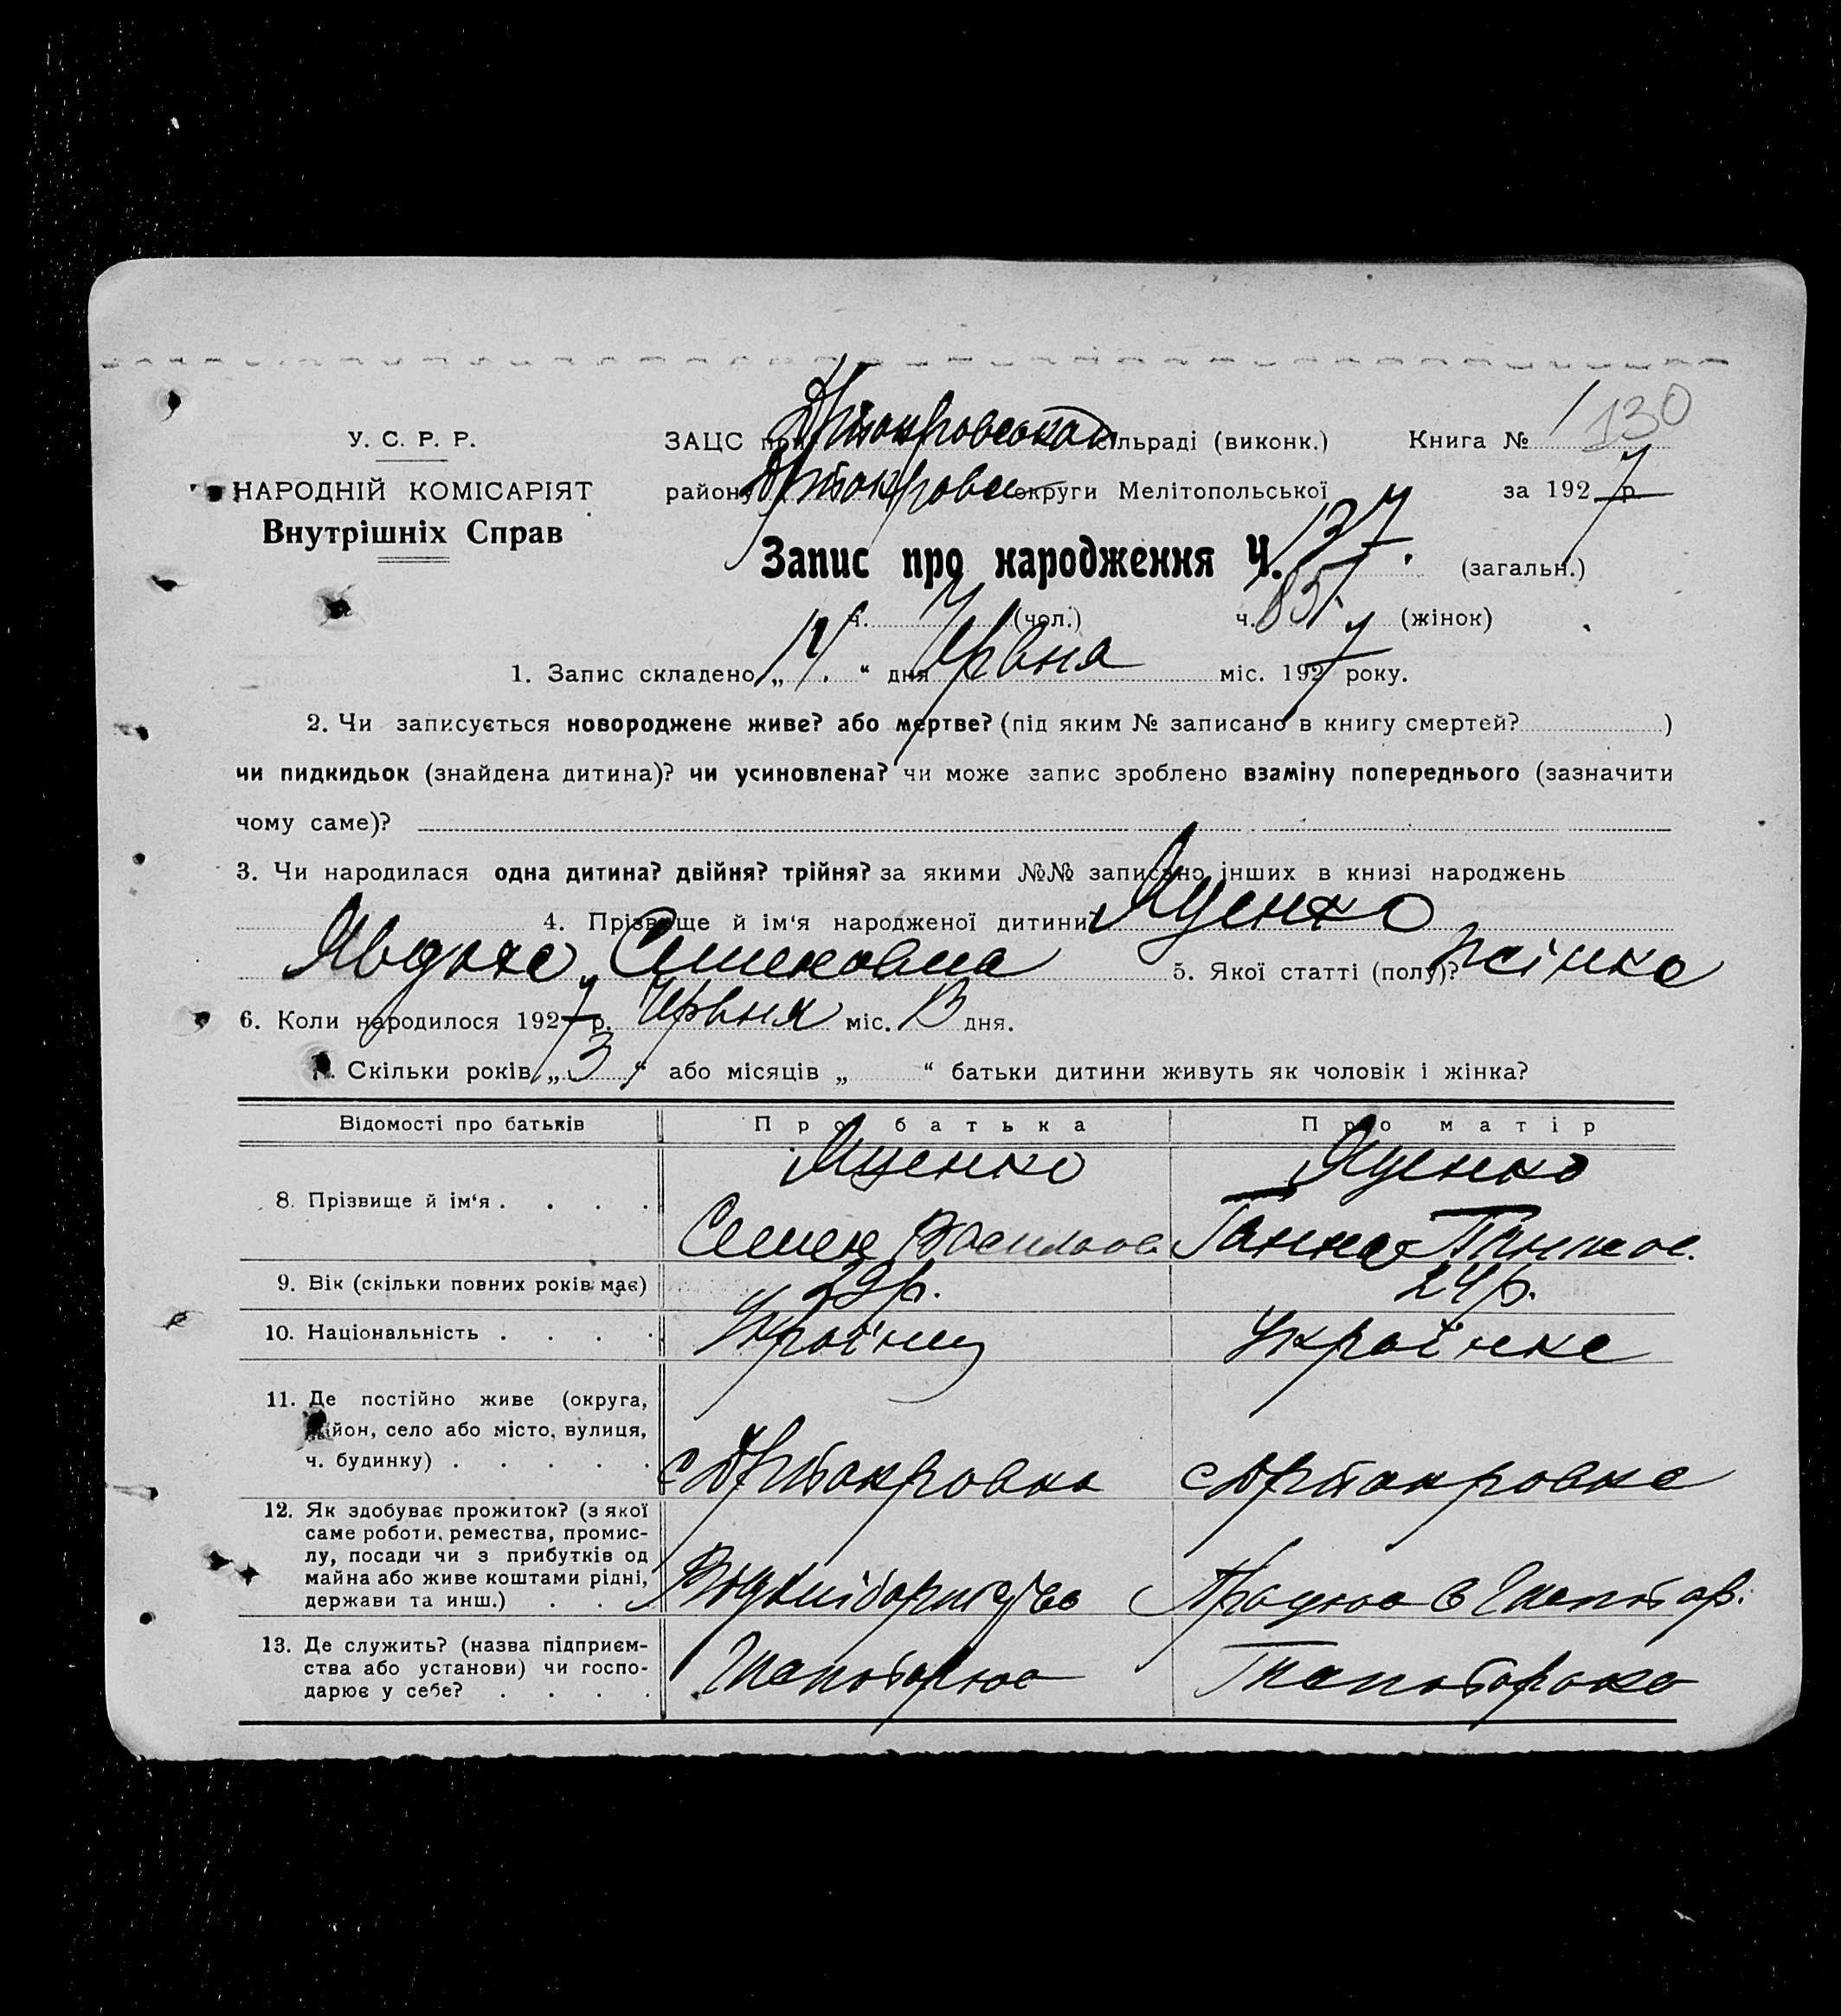 У. С. Р. Р.
НАРОДНІЙ КОМІСАРІЯТ
Внутрішніх Справ
130
ЗАЦС при сільраді (виконк.) Книга № 1
району округи Мелітопольської за 1927 р.
Запис про народження Ч. 137. (загальн.)
ч. (чол.) ч. 85. (жінок)
1. Запис складено „ “ дня Червня міс. 1927 року.
2. Чи записується новороджене живе? або мертве? (під яким № записано в книгу смертей? )
чи пидкидьок (знайдена дитина)? чи усиновлена? чи може запис зроблено взаміну попереднього (зазначити
чому саме)?
3. Чи народилася одна дитина? двійня? трійня? за якими №№ записано інших в книзі народжень
4. Прізвище й ім‘я народженої дитини Яценко
Явдоха Семеновна 5. Якої статті (полу)? жінка
6. Коли народилося 1927 р. Червня міс. 13 дня.
7. Скільки років „ 3 “ або місяців „ “ батьки дитини живуть як чоловік і жінка?
Відомості про батьків Про батька Про матір
8. Прізвище й ім‘я . . . . Яценко Яценко
Семен Васильов. Ганна
9. Вік (скільки повних років має) 29р. 24р.
10. Національність . . . . Українец Українка
11. Де постійно живе (округа,
район, село або місто, вулиця,
ч. будинку) . . . . .
12. Як здобуває прожиток? (з якої
саме роботи, ремества, промис-
лу, посади чи з прибутків од
майна або живе коштами рідні,
держави та инш.) . . .
13. Де служить? (назва підприєм-
ства або установи) чи госпо-
дарює у себе? . . . .